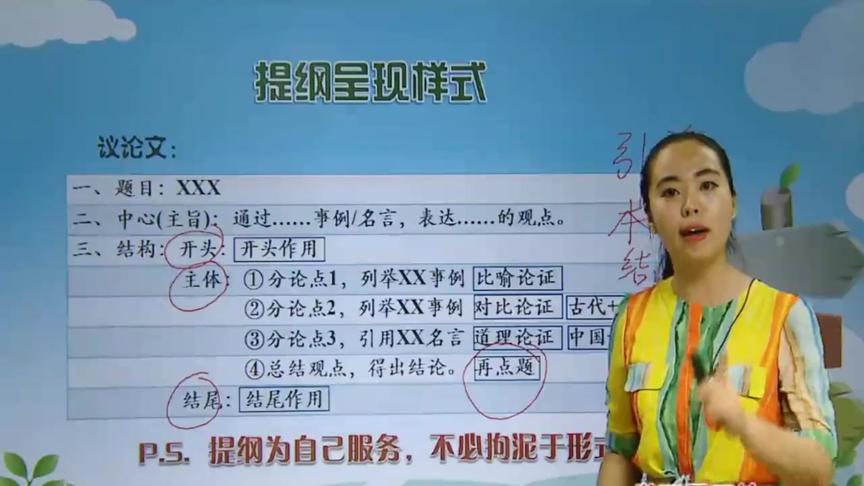 提纲呈现样式
议论文：
一、题目：XXX
二、中心(主旨)：通过……事例/名言，表达……的观点。
三、结构：开头：开头作用
主体：①分论点1，列举XX事例 比喻论证
②分论点2，列举XX事例 对比论证 古代+
③分论点3，引用XX名言 道理论证 中国
④总结观点，得出结论。 再点题
结尾：结尾作用
P.S. 提纲为自己服务，不必拘泥于形式
引
本
结